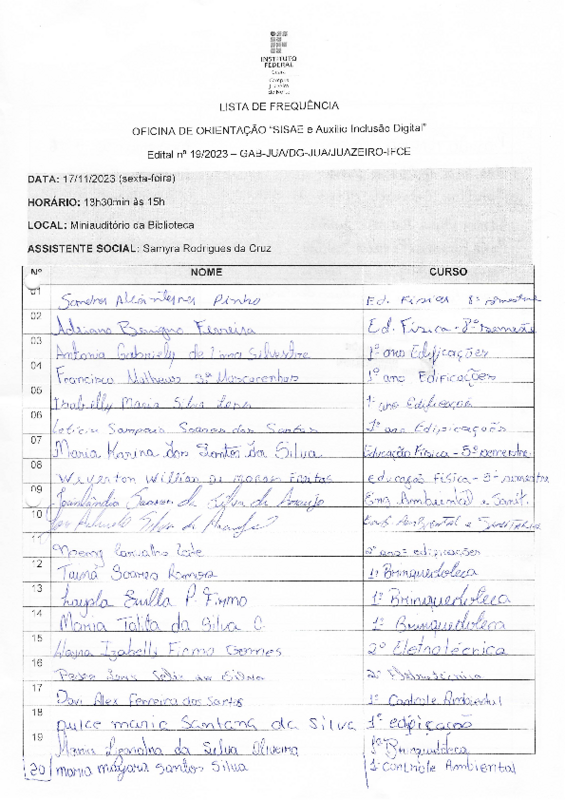 INSTITUTO
FEDERAL
Ceará
Campus
Juazeiro
do Norte
LISTA DE FREQUÊNCIA
OFICINA DE ORIENTAÇÃO "SISAE e Auxílio Inclusão Digital"
Edital nº 19/2023 – GAB-JUA/DG-JUA/JUAZEIRO-IFCE
DATA: 17/11/2023 (sexta-feira)
HORÁRIO: 13h30min às 15h
LOCAL: Miniauditório da Biblioteca
ASSISTENTE SOCIAL: Samyra Rodrigues da Cruz
Nº NOME CURSO
01 Pinho Ed. Física 8º semestre
02 Adriano Benigno Ferreira Ed. Física - 8º semestre
03 Antonia Gabriely de Lima Silvestre 1º ano Edificações
04 Francisco Matheus Mascarenhas 1º ano Edificações
05 Isabelly Maria Silva 1º ano Edificação
06 Leticia Sampaio Soares dos Santos 1º ano Edificações
07 Maria Karina dos Santos da Silva Educação Física - 5º semestre
08 Weverton Willian de Freitas educação física - 5º semestre
09 da Silva de Araujo Eng. Ambiental e Sanit.
10 Silva de Eng. Ambiental e Sanitária
11 Noemy Carvalho Leite 2º ano edificações
12 Tainá Soares 1º Brinquedoteca
13 Layla P. Firmo 1º Brinquedoteca
14 Maria Talita da Silva C. 1º Brinquedoteca
15 Izabelli Firmo Gomes 2º Eletrotécnica
16 2º Eletrotécnica
17 Davi Alex Ferreira dos Santos 1º Controle Ambiental
18 Dulce maria Santana da Silva 1º edificação
19 Maria da Silva Oliveira 1º Brinquedoteca
20 maria mayara santos Silva 1º Controle Ambiental